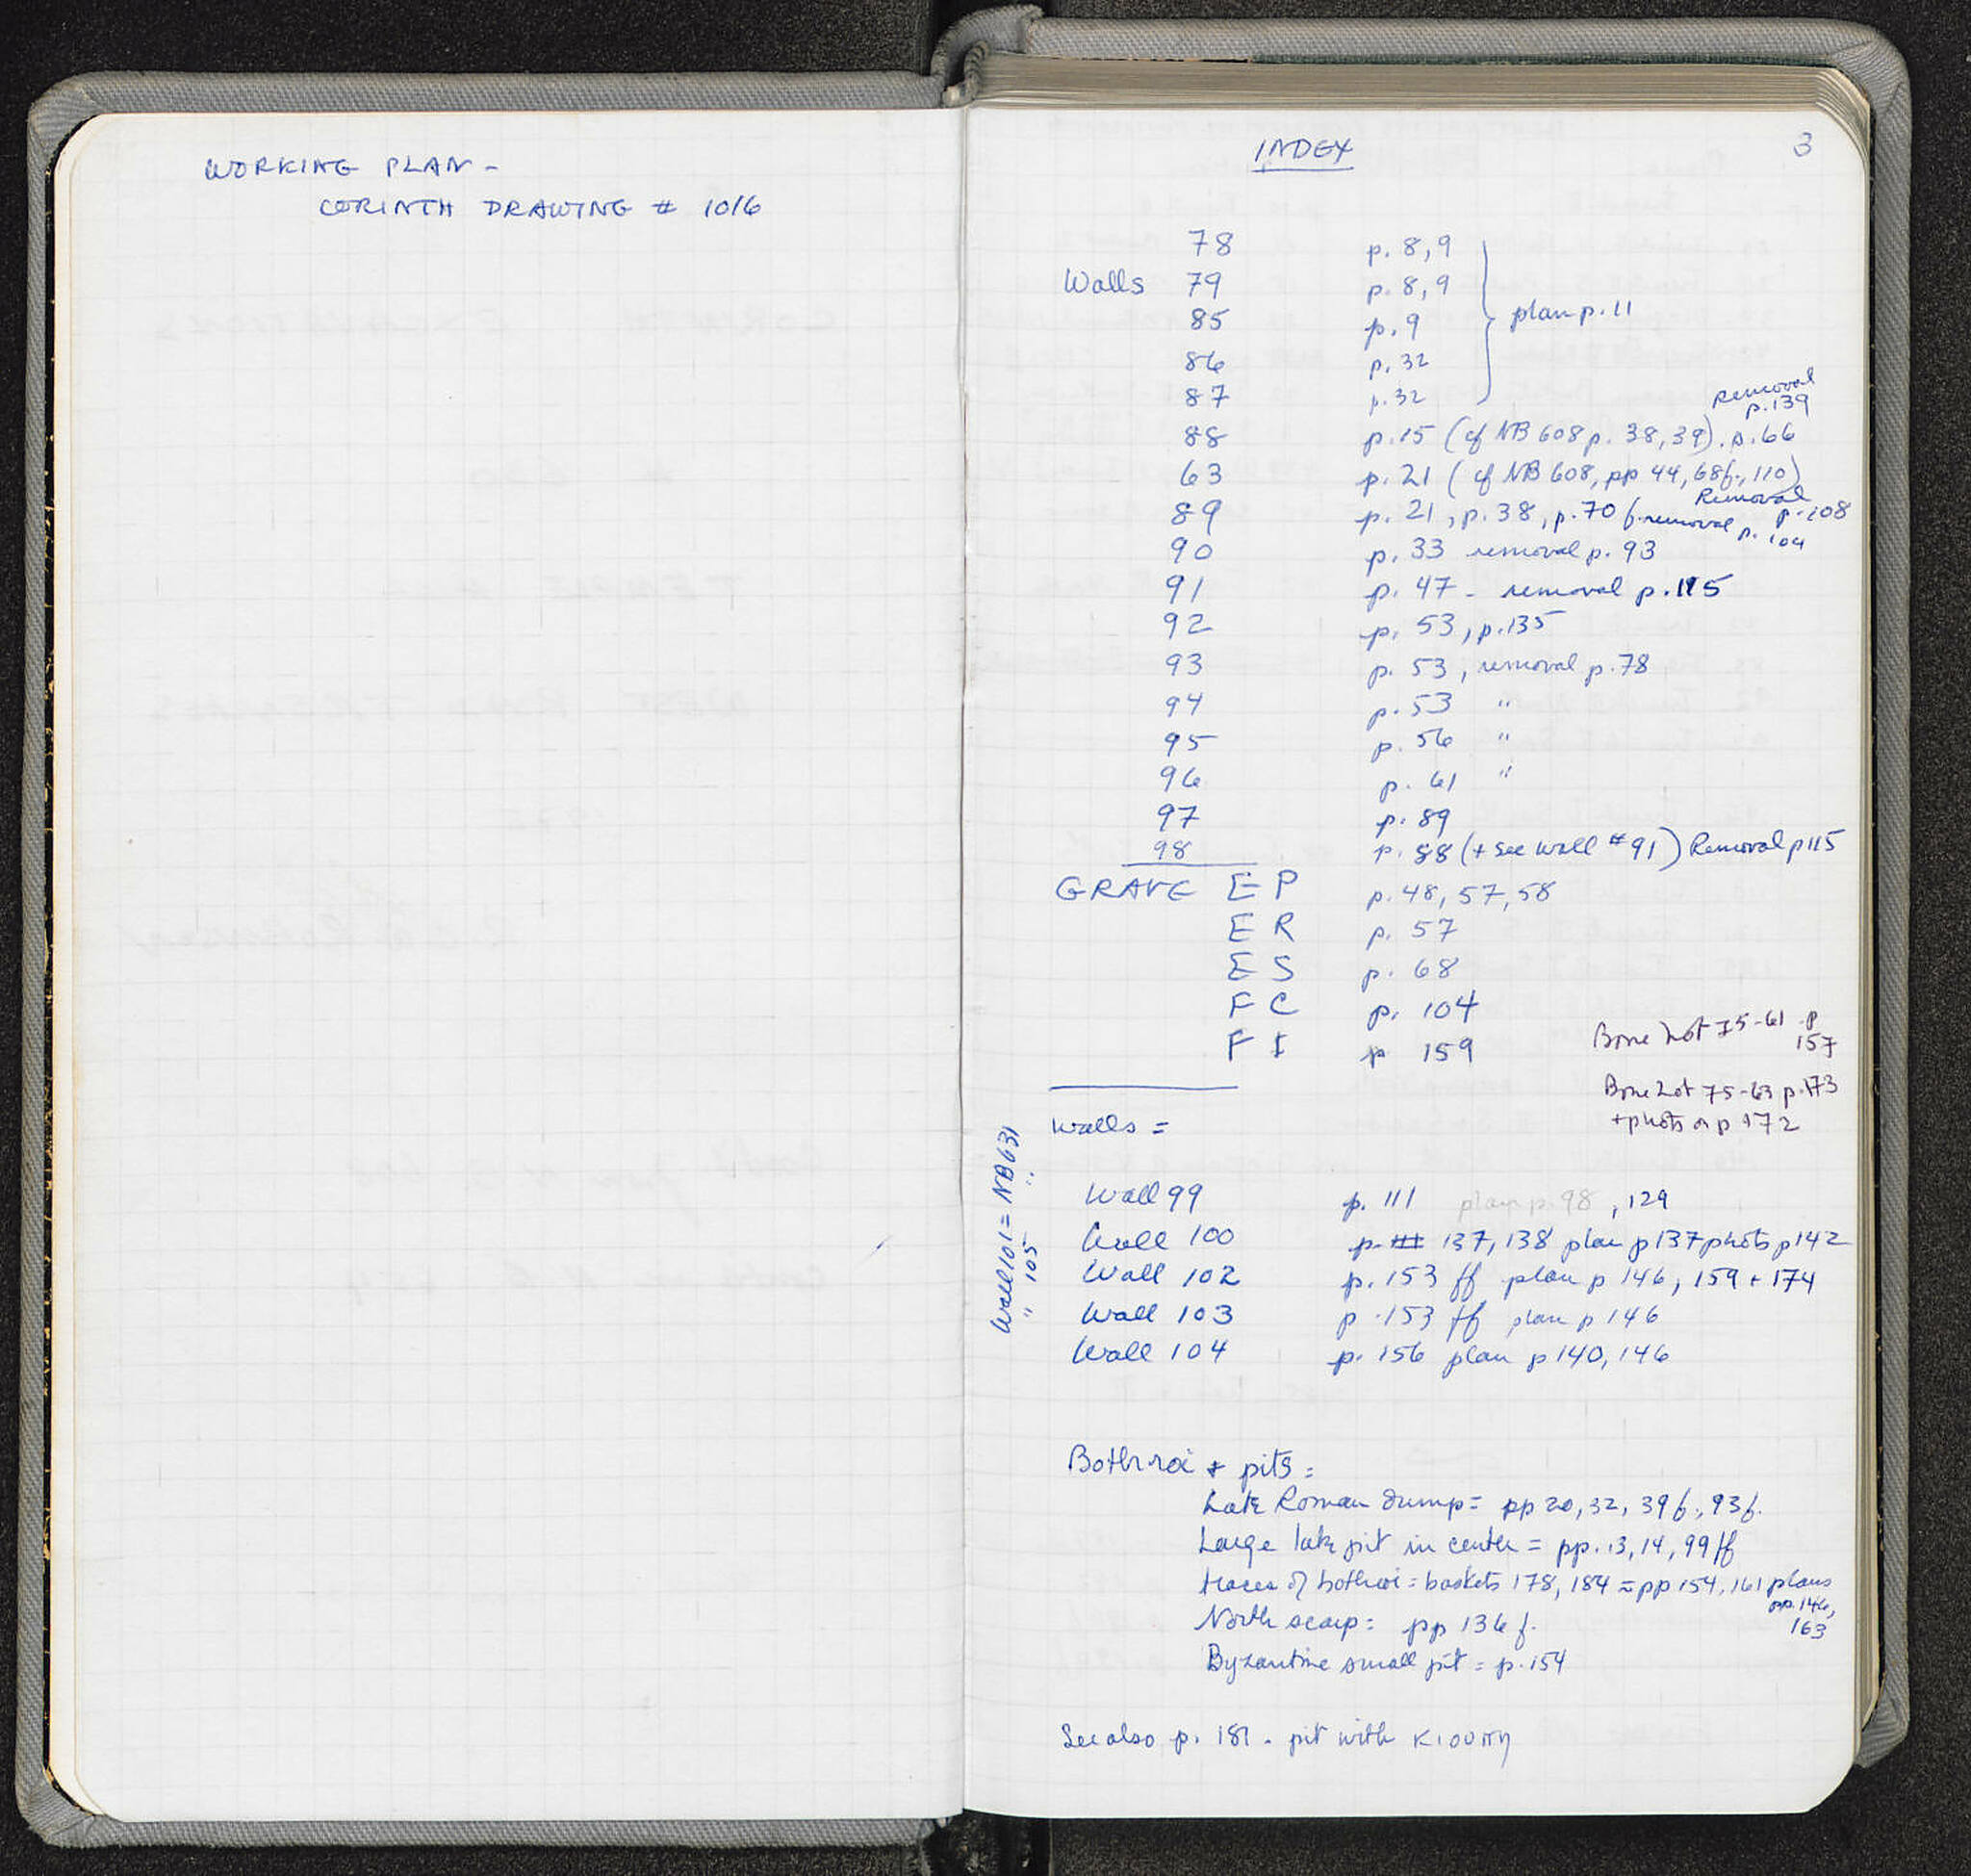 WORKING PLAN -
CORINTH DRAWING # 1016
INDEX
3
78 p. 8,9
Walls 79 p. 8,9
85 p. 9
plan p. 11
86 p. 32
87 p. 32
Removal
p. 139
88 p. 15 (cf NB 608 p. 38, 39). p. 66
63 p. 21 (cf NB 608, pp 44, 68f., 110)
Removal
p. 108
89 p. 21, p. 38, p. 70 f. removal p. 104
90 p. 33 removal p. 93
91 p. 47 - removal p. 115
92 p. 53, p. 135
93 p. 53, removal p. 78
94 p. 53 "
95 p. 56 "
96 p. 61 "
97 p. 89
98 p. 88 (+ see wall #91) Removal p 115
GRAVE EP p. 48, 57, 58
ER p. 57
ES p. 68
FC p. 104
FI p 159
Bone Lot 75-61 p
157
Bone Lot 75-63 p. 173
+ photo on p 172
Walls =
Wall 101 = NB 631
" 105 "
Wall 99 p. 111 plan p. 98, 129
Wall 100 p. 137, 138 plan p 137 photo p 142
Wall 102 p. 153 ff plan p 146, 159 + 174
Wall 103 p. 153 ff plan p 146
Wall 104 p. 156 plan p 140, 146
Bothroi + pits =
Late Roman dump = pp 20, 32, 39f., 93f.
Large late pit in center = pp. 13, 14, 99 ff
traces of bothroi = baskets 178, 184 = pp 154, 161 plans
pp. 146,
163
North scarp = pp 136 f.
Byzantine small pit = p. 154
See also p. 181 - pit with κιούπη